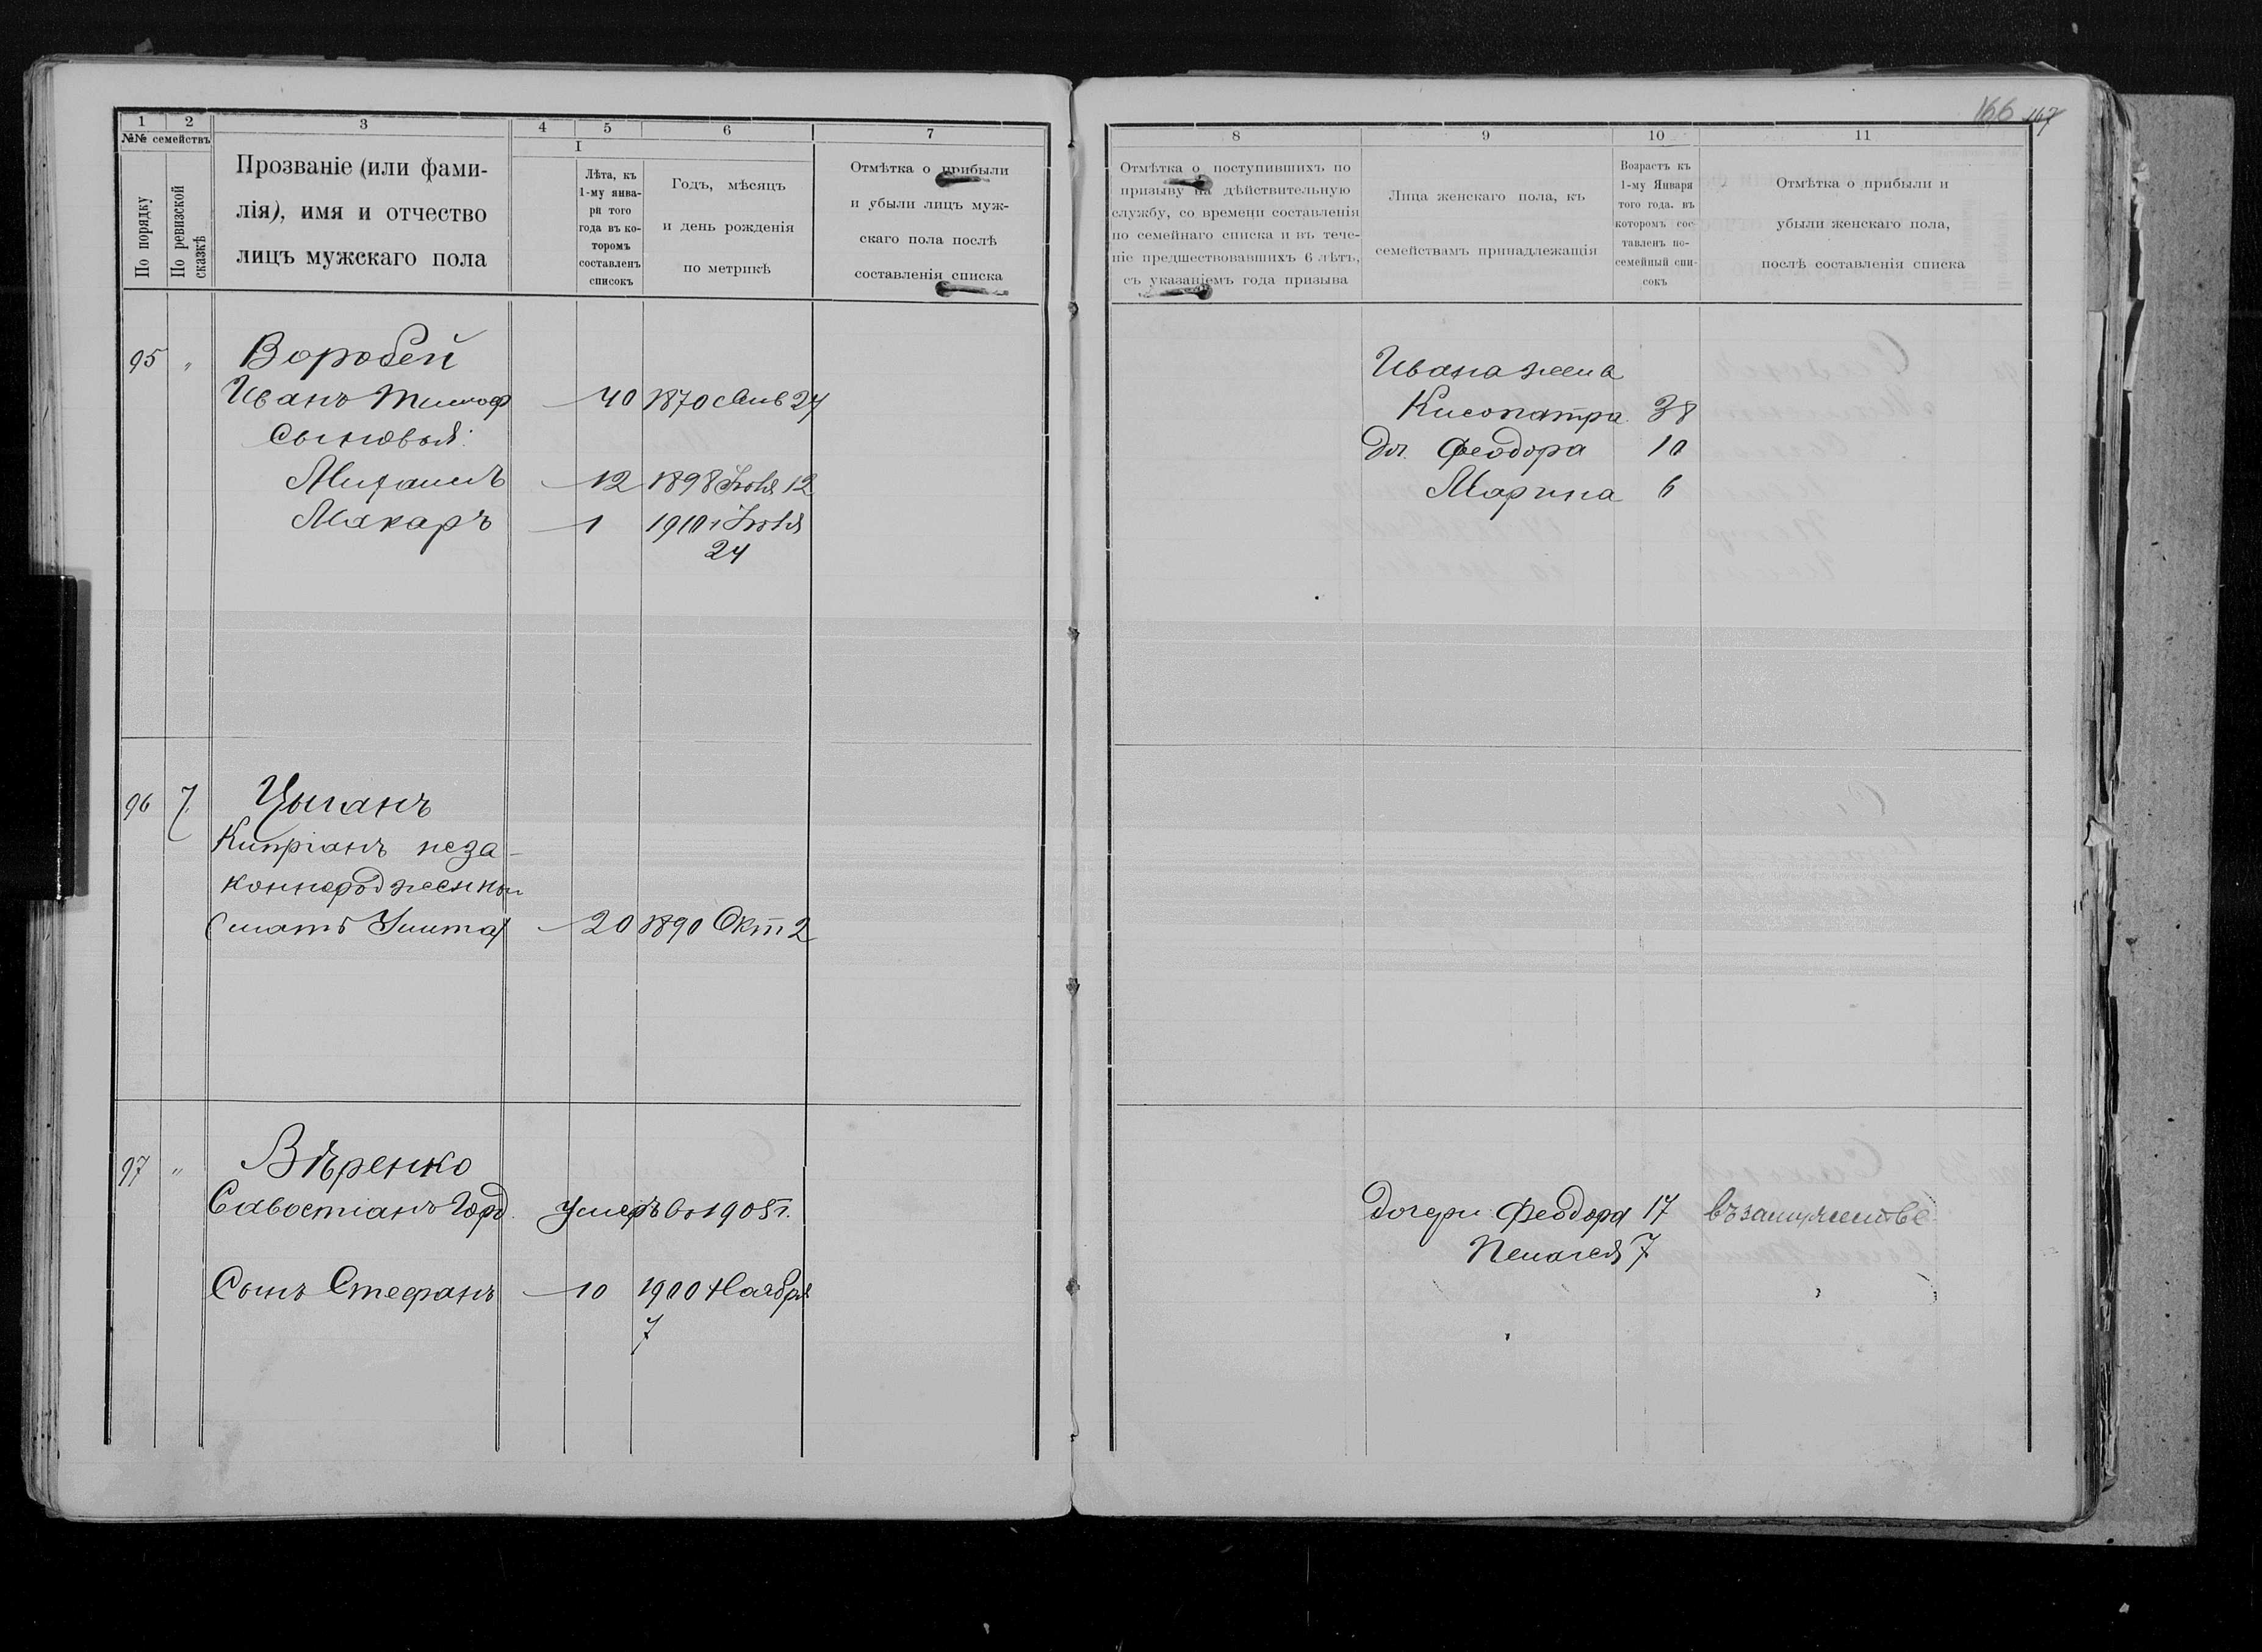 166 167
1 2 3 4 5 6 7
№№ семействъ
По порядку
По ревизской сказкѣ
Прозваніе (или фами-
лія), имя и отчество
лицъ мужскаго пола
I
Лѣта, къ
1-му янва-
ря того
года въ ко-
торомъ
составленъ
списокъ
Годъ, мѣсяцъ
и день рожденія
по метрикѣ
Отмѣтка о прибыли
и убыли лицъ муж-
скаго пола послѣ
составленія списка
95 " Воробей
Иванъ Тимоф 40 1870 Янв 24
Сыновья:
Михаилъ 12 1898 Іюля 12
Макаръ 1 1910 г Іюля
24
96 7 Цыганъ
Кипріанъ неза-
коннорожденный
(мать 20 1890 Окт 2
97 " Вѣренко
Савостіанъ Горд. Умеръ въ 1905 г.
Сынъ Стефанъ 10 1900 Ноября
7
8 9 10 11
Отмѣтка о поступившихъ по
призыву на дѣйствительную
службу, со времени составленія
по семейнаго списка и въ тече-
ніе предшествовавшихъ 6 лѣтъ,
съ указаніемъ года призыва
Лица женскаго пола, къ
семействамъ принадлежащія
Возрастъ къ
1-му Января
того года. въ
которомъ сос-
тавленъ по-
семейный спи-
сокъ
Отмѣтка о прибыли и
убыли женскаго пола,
послѣ составленія списка
Ивана жена
Клеопатра 38
Доч. Феодора 10
Марина 6
Дочери Феодора 17 въ замужестве
Пелагея 7